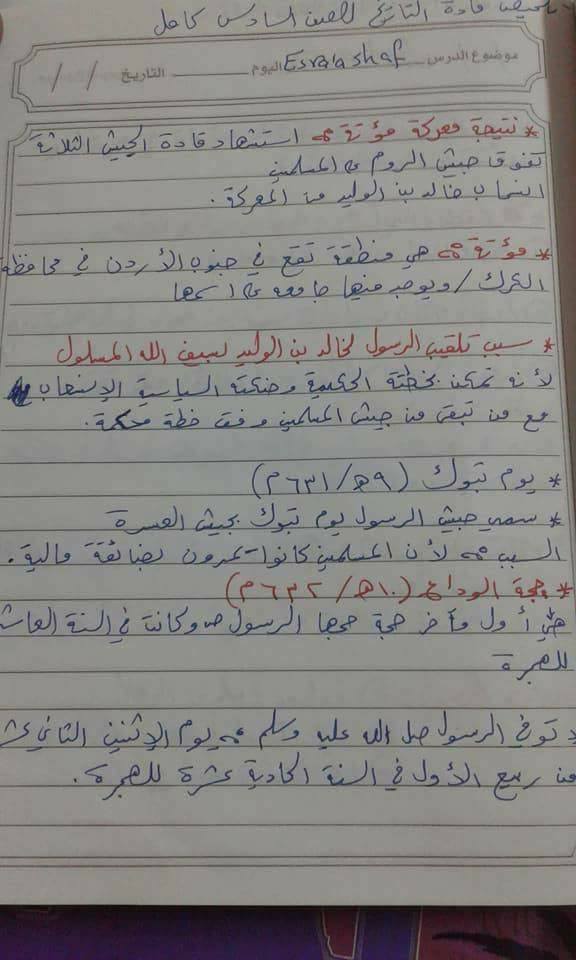 تلخيص مادة التاريخ للصف السادس كامل
موضوع الدرس Esraa shaf اليوم التاريخ / /
* نتيجة معركة مؤتة استشهاد قادة الجيش الثلاثة
تفوق جيش الروم على المسلمين
انسحاب خالد بن الوليد من المعركة.
* مؤتة هي منطقة تقع في جنوب الأردن في محافظة
الكرك / ويوجد فيها جامعة على اسمها
* سبب تلقيب الرسول لخالد بن الوليد بسيف الله المسلول
لأنه تمكن بخطته الحكيمة وحنكته السياسية الإنسحاب
مع من تبقى من جيش المسلمين وفق خطة محكمة.
* يوم تبوك (٩هـ/٦٣١م)
* سمي جيش الرسول يوم تبوك بجيش العسرة
السبب لأن المسلمين كانوا يمرون بضائقة مالية.
* حجة الوداع (١٠هـ/٦٣٢م)
هي أول وآخر حجة حجها الرسول ص وكانت في السنة العاش
للهجرة
توفي الرسول صلى الله عليه وسلم يوم الإثنين الثاني عش
من ربيع الأول في السنة الحادية عشرة للهجرة.